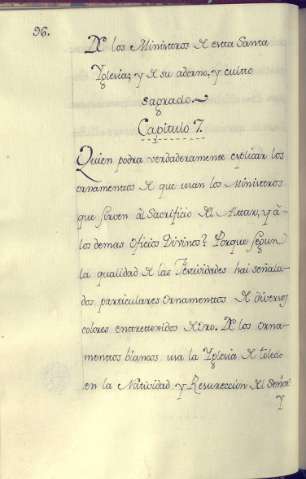 96.
De los Ministros de esta Santa
Yglesia, y de su adorno, y culto
sagrado.
Capitulo 7.
Quien podra verdaderamente explicar los
ornamentos de que usan los Ministros
que sirven al Sacrificio del Altar, y à
los demas Oficios Divinos? Porque segun
la qualidad de las Festividades hai señala-
dos particulares Ornamentos de diversos
colores entretexidos de oro. De los orna-
mentos blancos usa la Yglesia de toledo
en la Natividad y Resureccion del Señor
Y